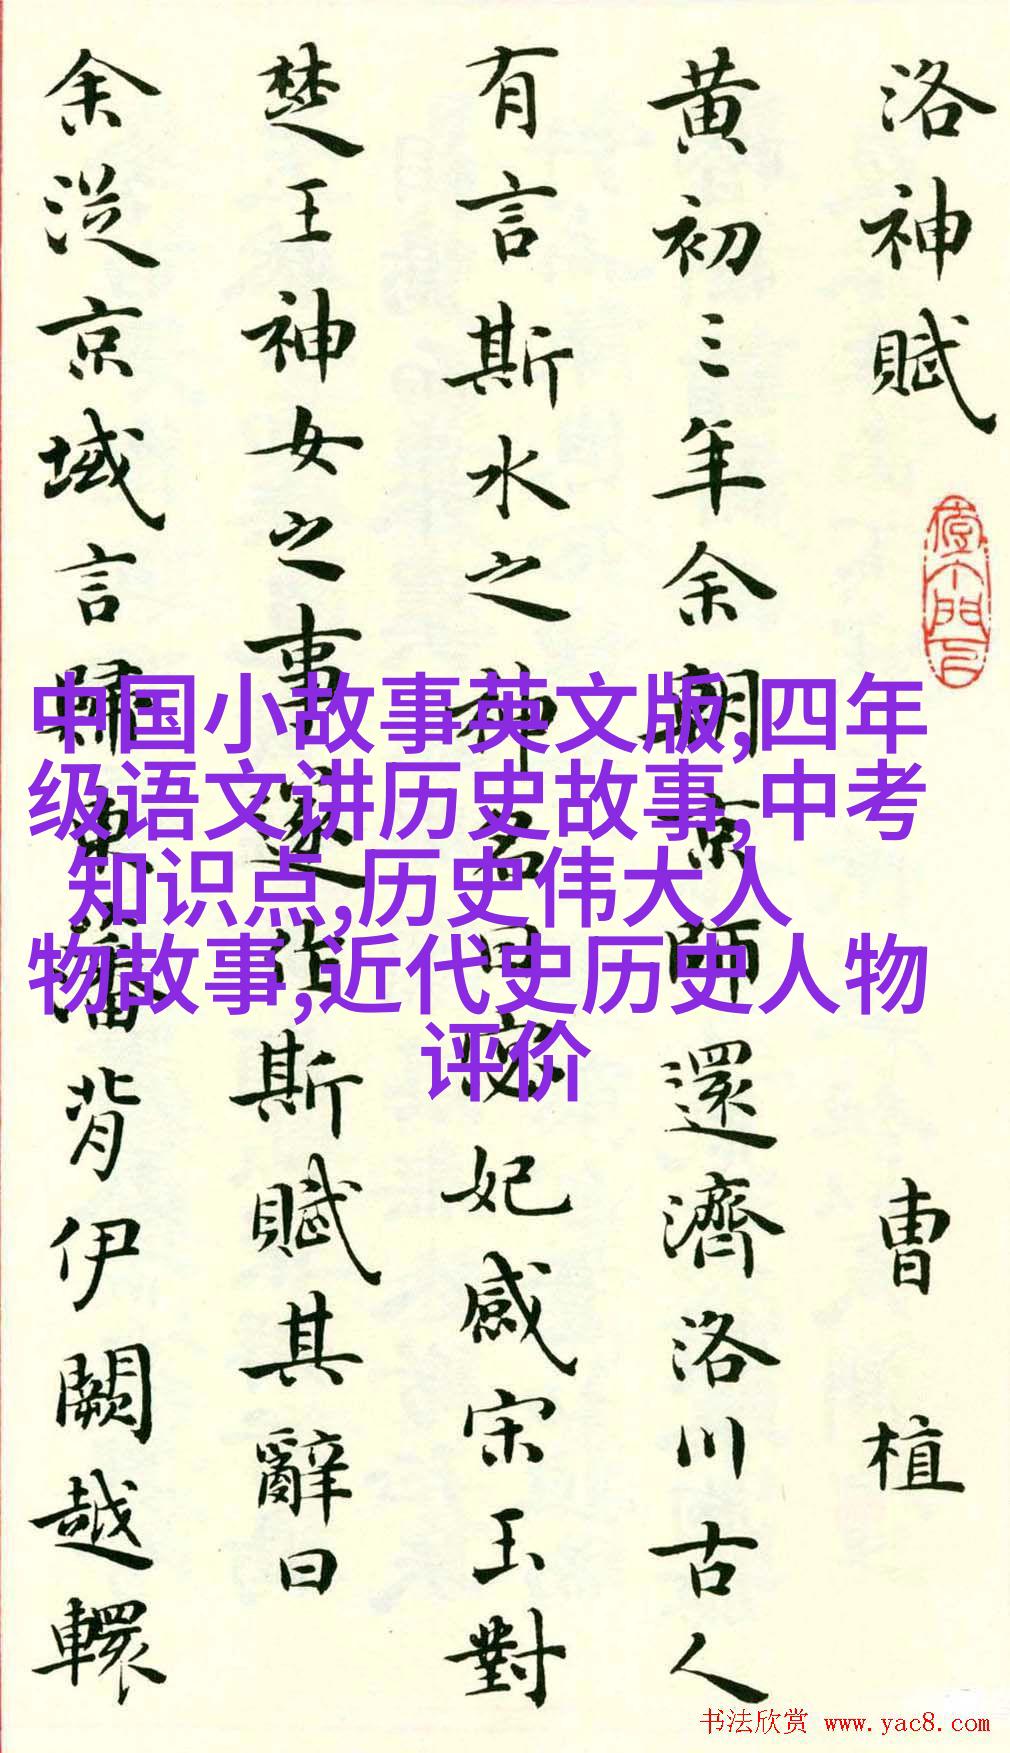 洛神賦
曹植
黄初三年余朝京師還濟洛川古人
有言斯水之神名曰宓妃感宋玉對
楚王神女之事遂作斯賦其辭曰
余從京域言歸東藩背伊闕越轘
中国小故事英文版,四年
级语文讲历史故事,中考
知识点,历史伟大人
物故事,近代史历史人物
评价
书法欣赏 www.yac8.com